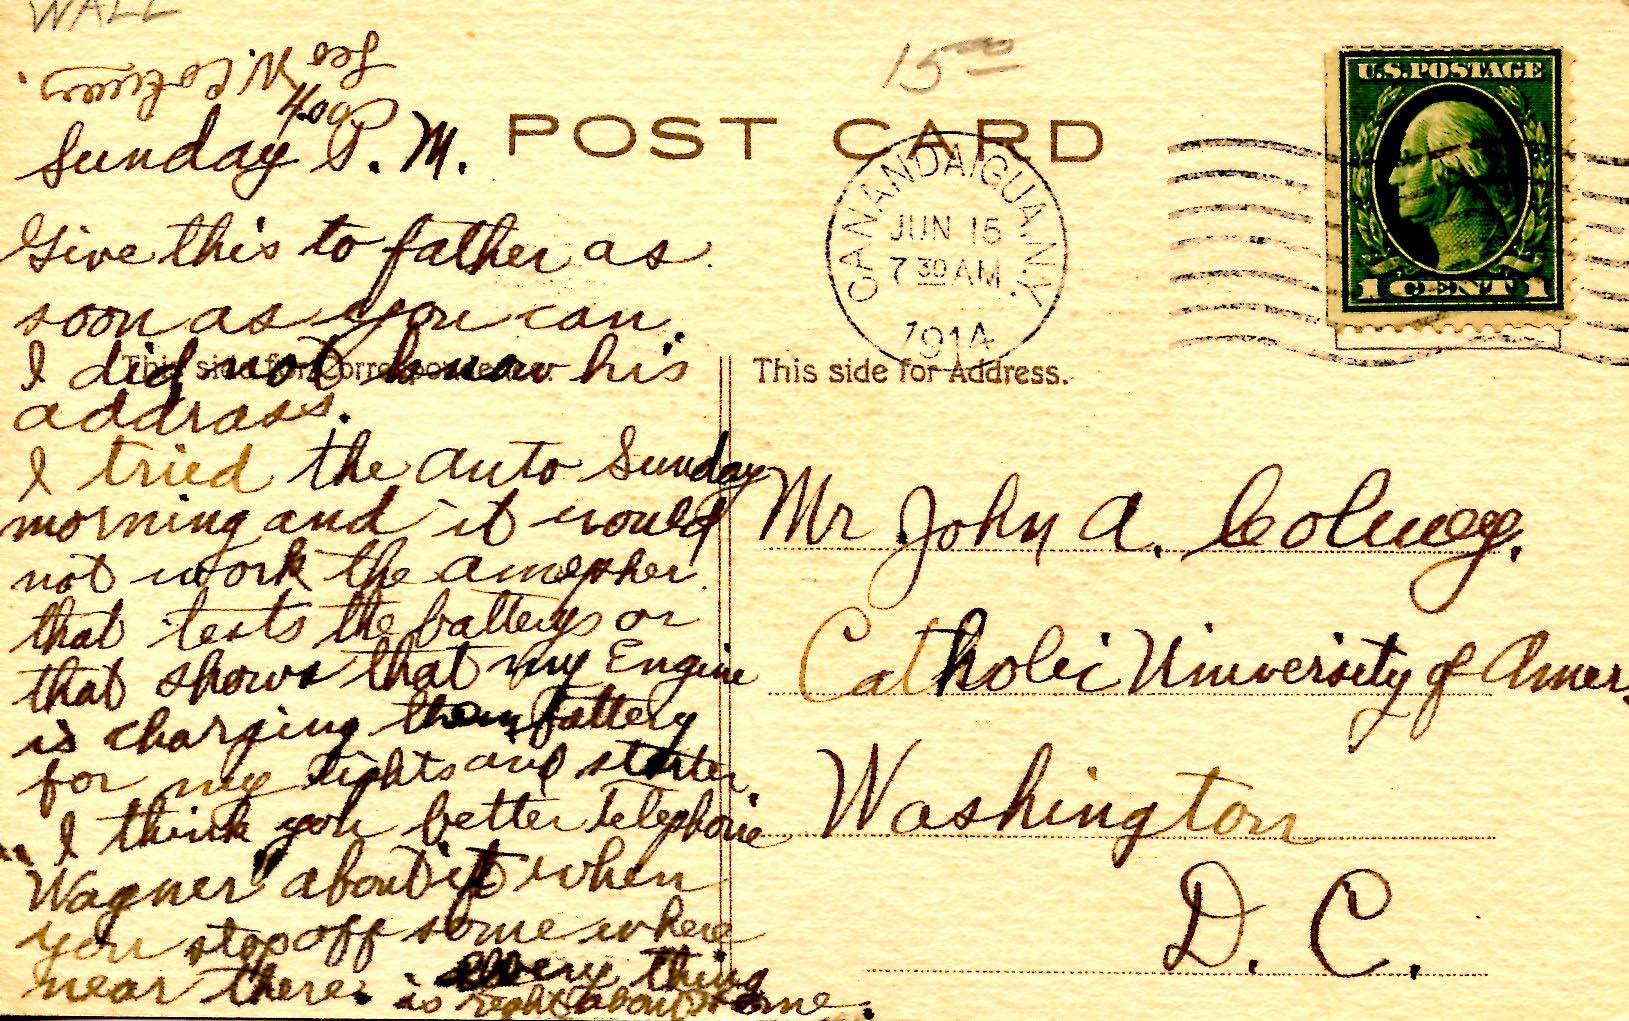 WALL
15 00
4.00
Sunday P. M.
POST CARD
U.S. POSTAGE
1 CENT 1
CANANDAIGUA, N.Y.
JUN 15
7 30 AM
1914
Give this to father as
soon as you can.
This side for Correspondence.
I did not know his
addrass.
I tried the auto Sunday
morning and it would
not work the
that tests the batterys or
that shows that my Engine
is charging battery
for my lights and starter.
I think you better telephone
"Wagner" about it when
you stop off some where
near there. every thing
is right about home.
This side for Address.
Mr John A. Colmey.
Catholic University of Amer.
Washington
D. C.